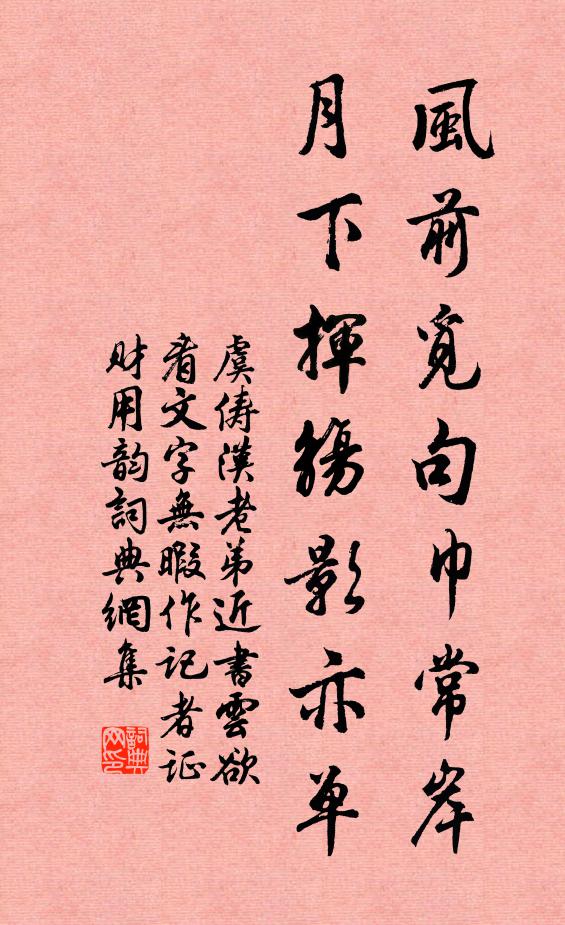 風前覓句巾常岸
月下揮觴影亦單
虞儔漢老弟近書雲欲
看文字無暇作記者証
財用韵詞典網集
詞典網印